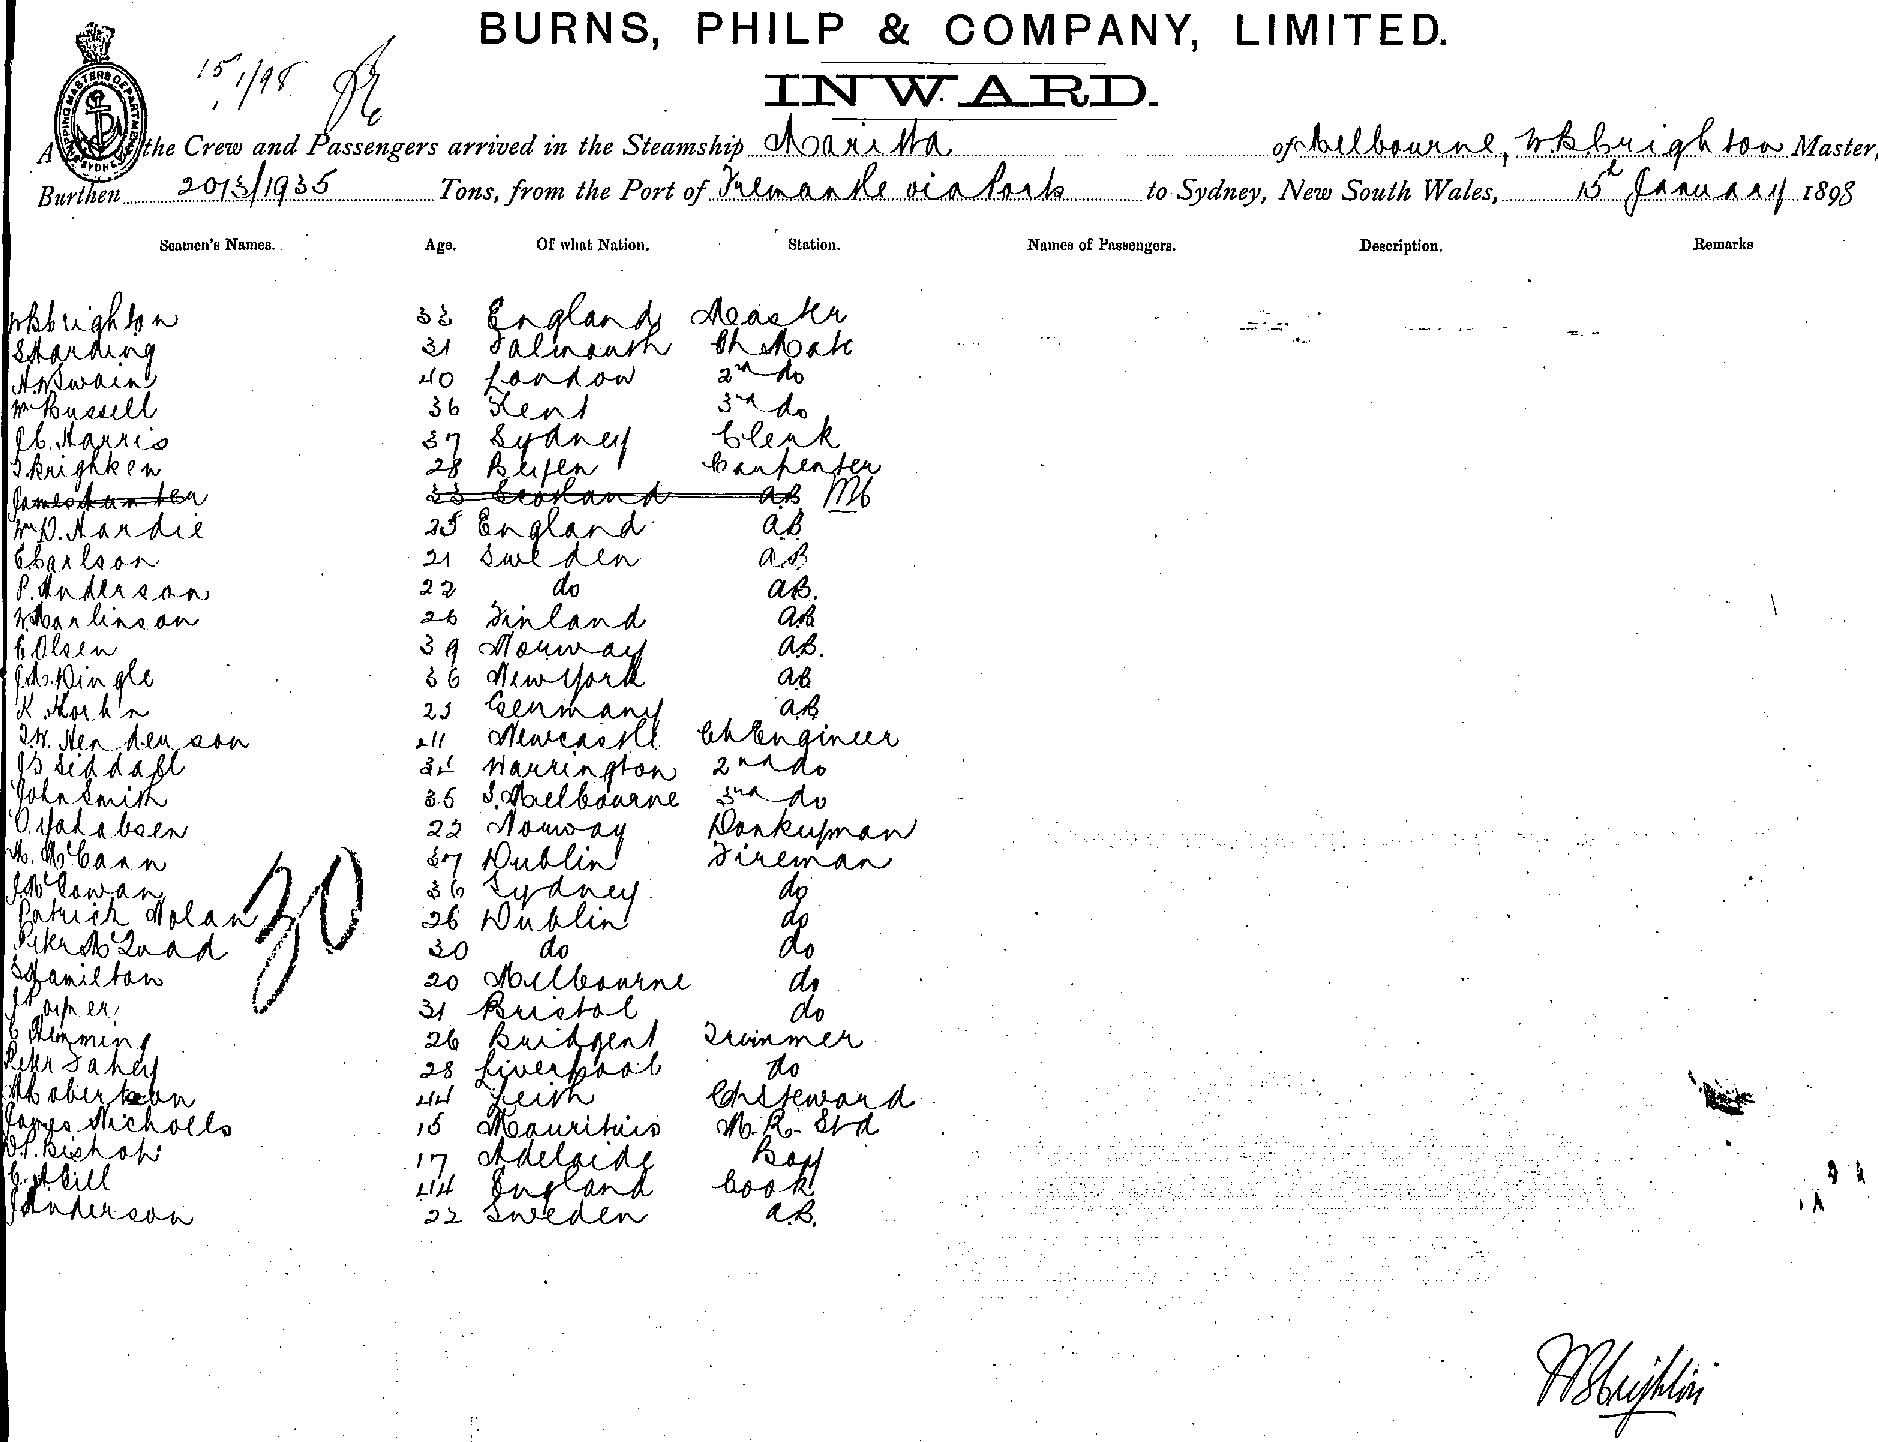 BURNS, PHILP & COMPANY, LIMITED.
INWARD.
15/1/98
SHIPPING MASTERS DEPARTMENT SYDNEY
A the Crew and Passengers arrived in the Steamship of Melbourne, Master,
Burthen 2013/1935 Tons, from the Port of Fremantle via Ports to Sydney, New South Wales, 15th January 1898
Seamen's Names. Age. Of what Nation. Station. Names of Passengers. Description. Remarks
33 England Master
S Harding 31 Falmouth Ch Mate
A. Swain 40 London 2nd do
Wm Bussell 36 Kent 3rd do
J C. Harris 37 Sydney Clerk
28 Carpenter
James Hunter 33 Scotland AB
Wm D. Hardie 25 England AB
C Carlson 21 Sweden AB
P. Anderson 22 do AB.
26 Finland AB
C Olsen 39 Norway AB.
Dingle 36 New York AB
K. 25 Germany AB
Henderson 41 Newcastle Ch Engineer
Siddall Warrington 2nd do
John Smith 35 S. Melbourne 3rd do
22 Norway Donkeyman
M. McCann 37 Dublin Fireman
J McCowan 36 Sydney do
Patrick Nolan 26 Dublin do
30
Peter McQuad 30 do do
Hamilton 20 Melbourne do
31 Bristol do
C Hemming 26 Trimmer
Peter Fahey 28 Liverpool do
44 Leith Ch Steward
James Nicholls 15 Mauritius M. R. Std
Bishop 17 Adelaide Boy
C. A Gill 44 England Cook
J Anderson 22 Sweden A.B.